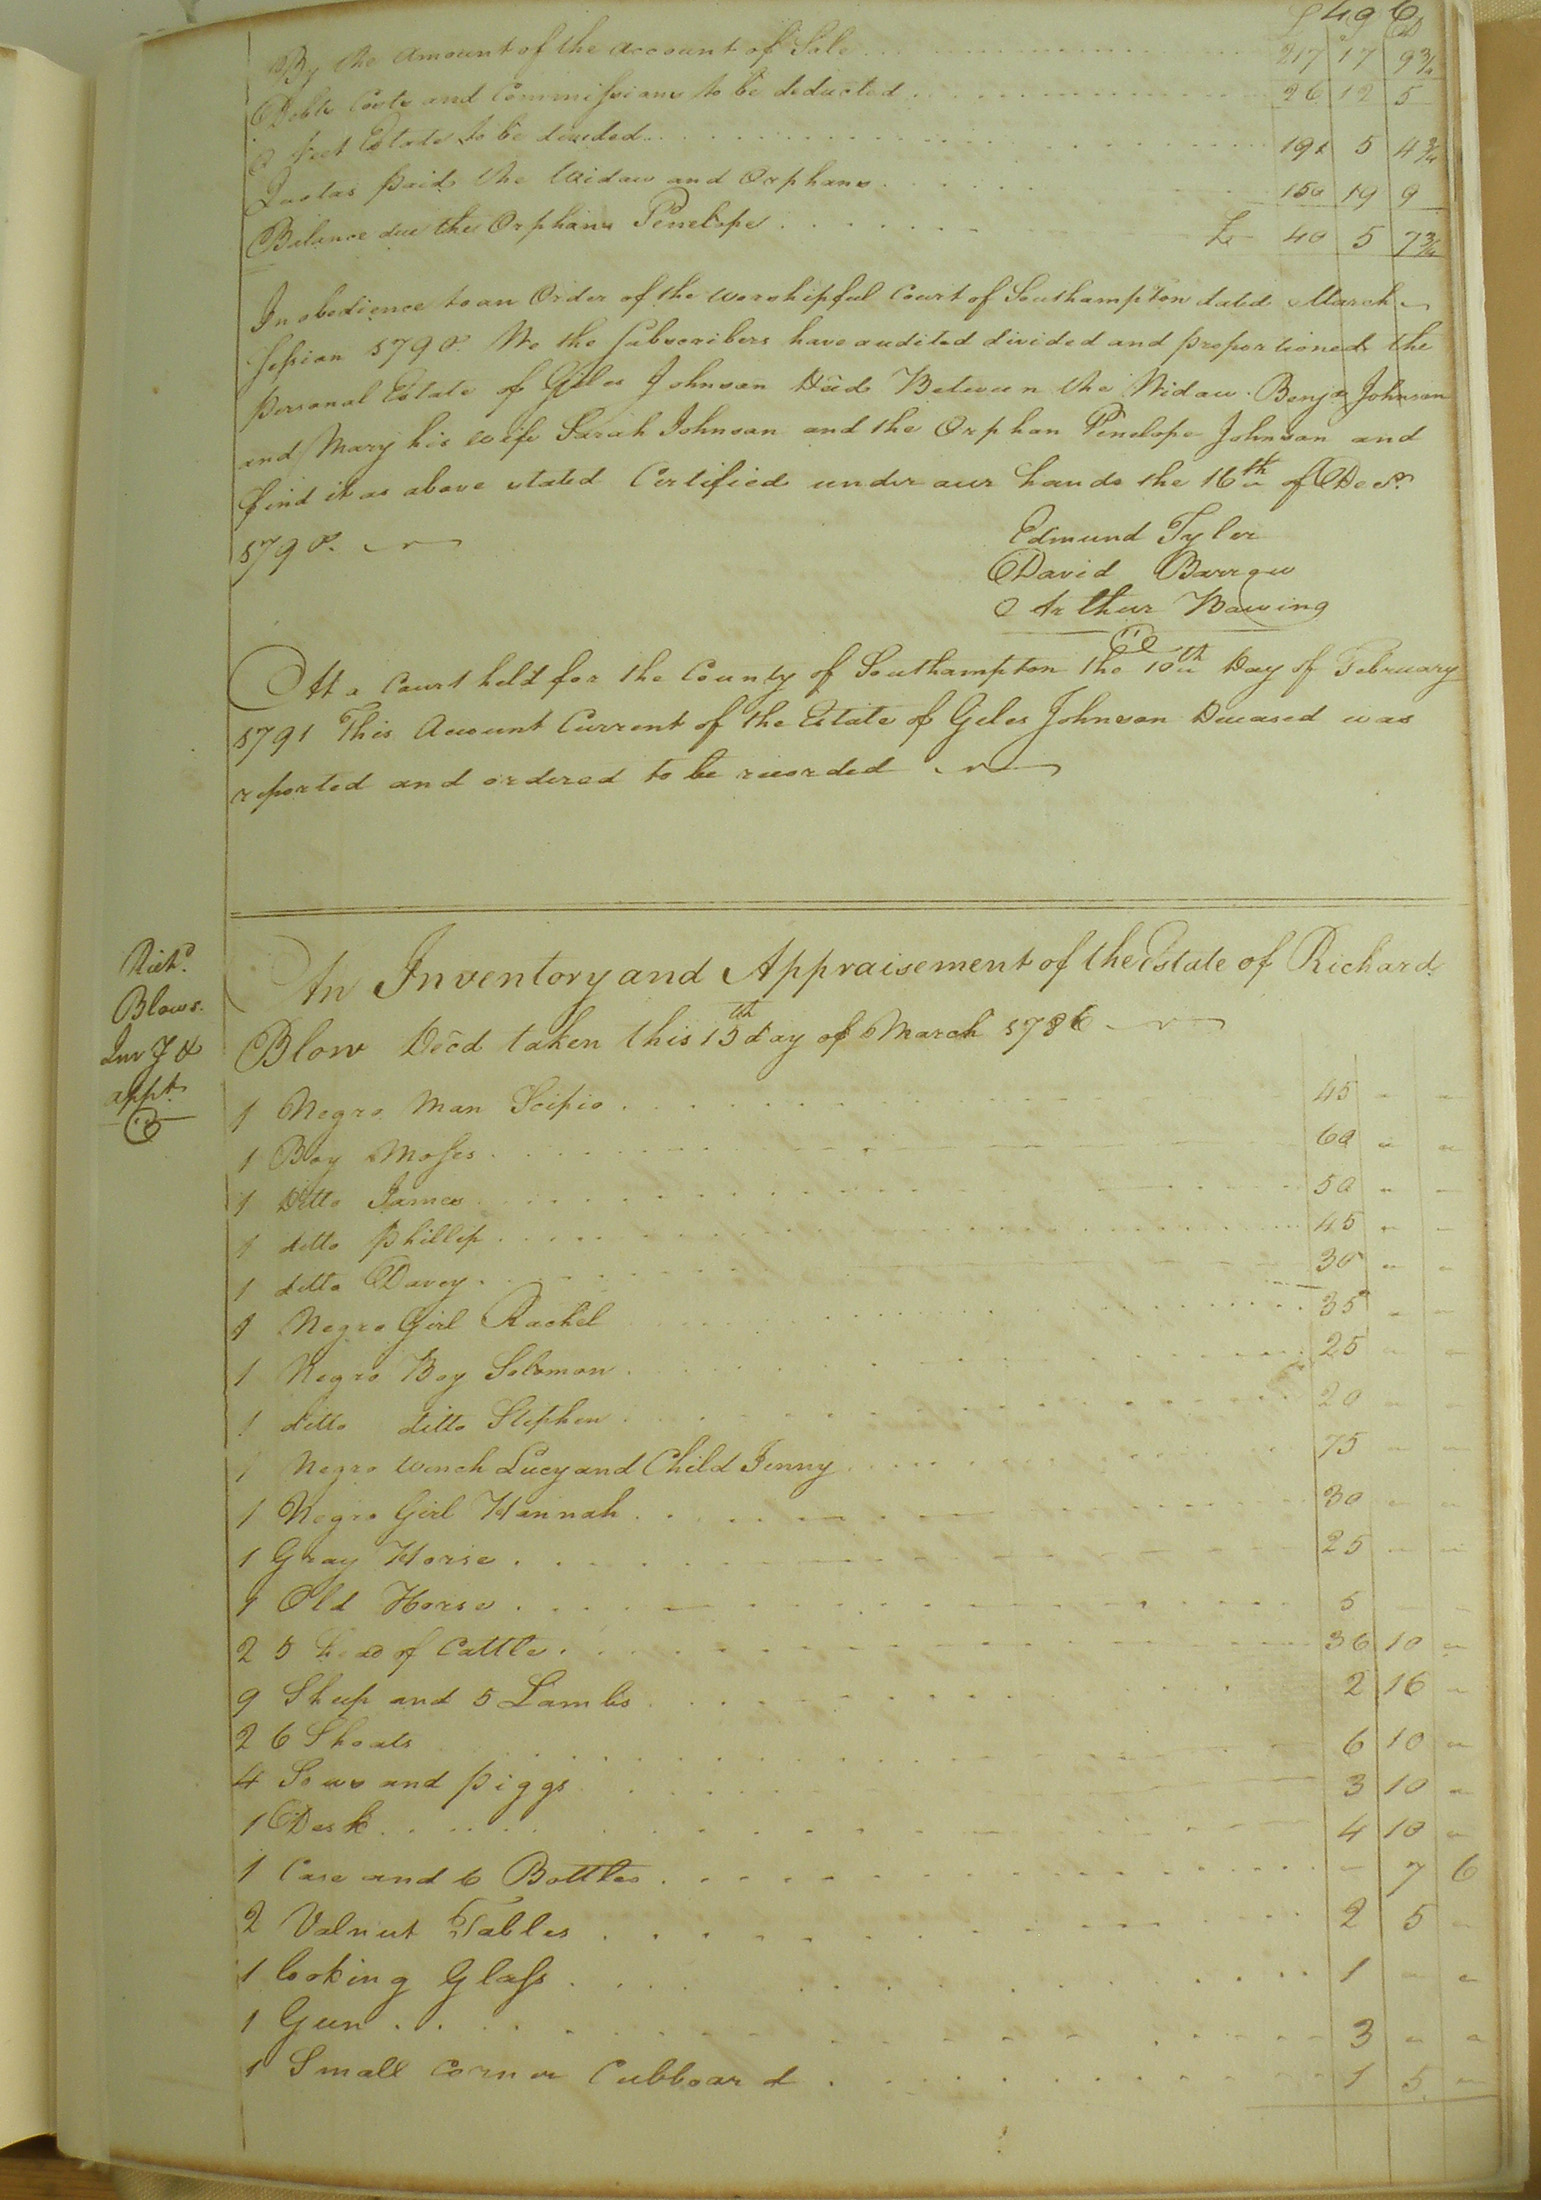 £ 496 D
By the Amount of the account of Sale 217 17 9¾
Debts Costs and Commissions to be deducted 26 12 5
Neet Estate to be divided 191 5 4¾
Quotas paid the Widow and Orphans 150 19 9
Balance due the Orphan Penelope £ 40 5 7¾
In obedience to an Order of the worshipful Court of Southampton dated March
Session 1790. We the subscribers have audited divided and proportioned the
personal Estate of Giles Johnson Decd Between the Widow. Benja Johnson
and Mary his wife Sarah Johnson and the Orphan Penelope Johnson and
find it as above stated Certified under our hands the 16th of Decr.
1790.
Edmund Tyler
David Barrow
Arthur Bowing
At a Court held for the County of Southampton the 10th Day of February
1791 This Account Current of the Estate of Giles Johnson Deceased was
reported and ordered to be recorded
Richd.
Blows.
Invy &
appt.
An Inventory and Appraisement of the Estate of Richard
Blow Decd taken this 15th day of March 1786
1 Negro Man Scipio 45 " "
1 Boy Moses 60 " "
1 Ditto James 50 " "
1 ditto Phillip 45 " "
1 ditto Davey 30 " "
1 Negro Girl Rachel 35 " "
1 Negro Boy Solomon 25 " "
1 ditto ditto Stephen 20 " "
1 Negro Wench Lucy and Child Jenny 75 " "
1 Negro Girl Hannah 30 " "
1 Gray Horse 25 " "
1 Old Horse 5 " "
25 Head of Cattle 36 10 "
9 Sheep and 5 Lambs 2 16 "
26 Shoats 6 10 "
4 Sows and piggs 3 10 "
1 Desk 4 10 "
1 Case and 6 Bottles " 7 6
2 Valnut Tables 2 5 "
1 looking Glass 1 " "
1 Gun 3 " "
1 Small corner Cubboard 1 5 "